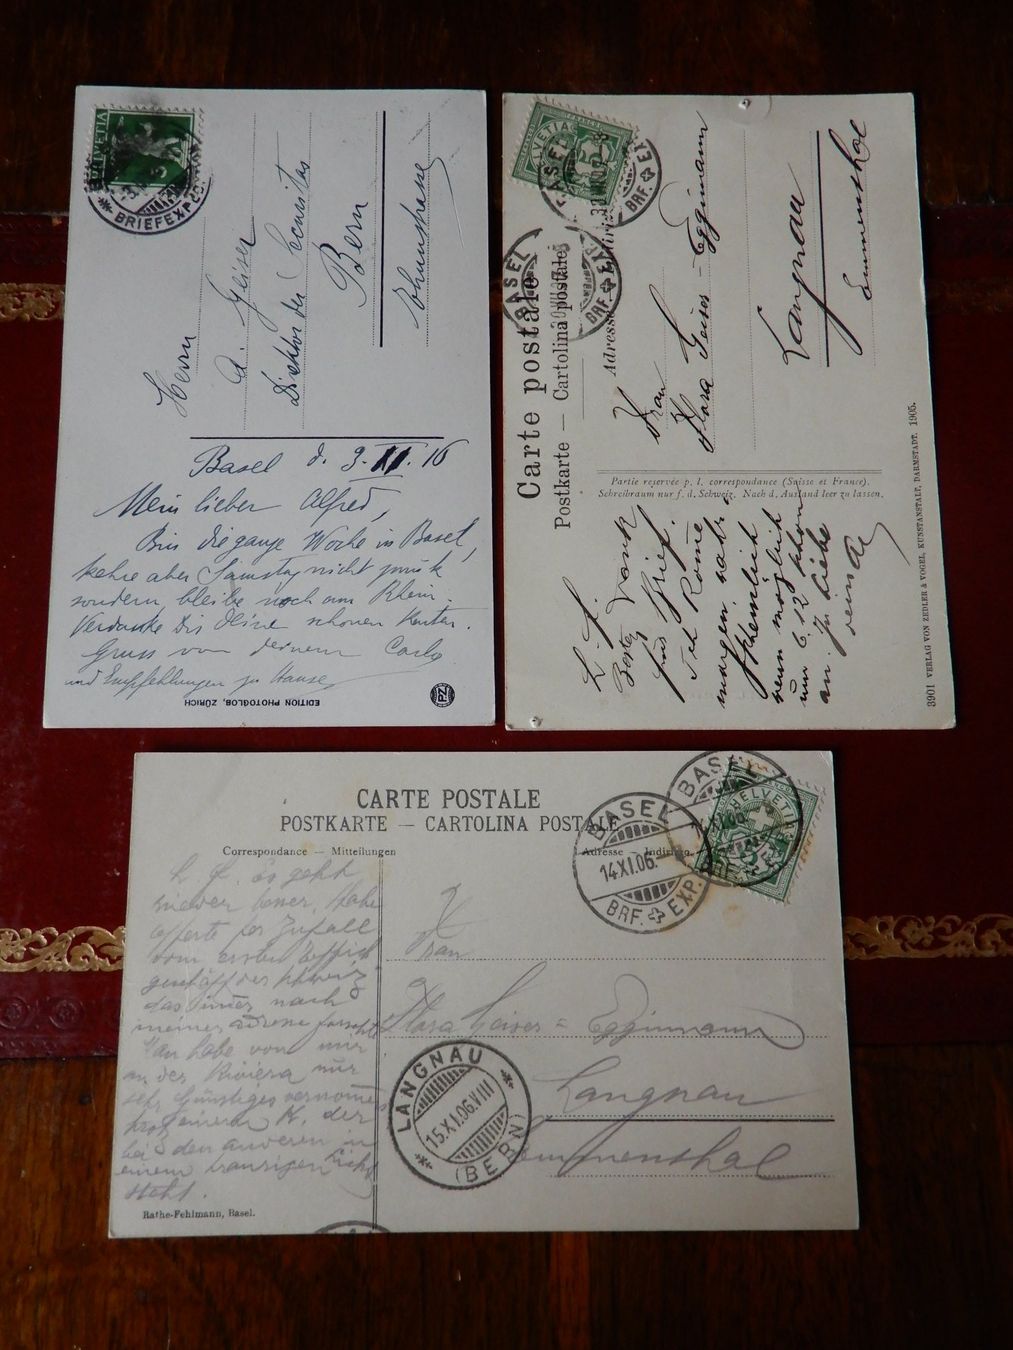 HELVETIA
BRIEFEXP
Herrn
A. Geiser
Direktor der Securitas
Bern
Basel d. 3. II. 16
Mein lieber Alfred,
Bin die ganze Woche in Basel,
kehre aber Samstag nicht zurück
sondern bleibe noch am Rhein.
Verdanke Dir Deine schönen Karten.
Gruss von deinem Carlo
und Empfehlungen zu Hause
EDITION PHOTOGLOB, ZÜRICH
PZ
HELVETIA
BASEL
BRF. EX
BASEL
BRF. EX
Carte postale
Postkarte — Cartolina postale
Adresse
Frau
Klara Geiser-Eggimann
Langnau
Emmenthal
Partie reservée p. l. correspondance (Suisse et France).
Schreibraum nur f. d. Schweiz. Nach d. Ausland leer zu lassen.
L. F.
Besten Dank
für Brief.
Ich komme
morgen
wenn möglich
um 6.12 schon
an. In Liebe
dein
3901 VERLAG VON ZEDLER & VOGEL, KUNSTANSTALT, DARMSTADT. 1905.
CARTE POSTALE
POSTKARTE — CARTOLINA POSTALE
Correspondance — Mitteilungen
Adresse — Indirizzo
BASEL
14.XI.06.
BRF. EXP.
BASEL
HELVETIA
5
L. F. Es geht
wieder besser. Habe
offerte per Zufall
vom ersten
geschäft der Schweiz
das immer nach
meiner adresse forschte
Man habe von mir
an der Riviera nur
sehr günstiges vernommen
bei den anderen in
einem traurigen Licht
steht.
Frau
Klara Geiser-Eggimann
Langnau
Emmenthal
LANGNAU
15.XI.06.VIII
(BERN)
Rathe-Fehlmann, Basel.